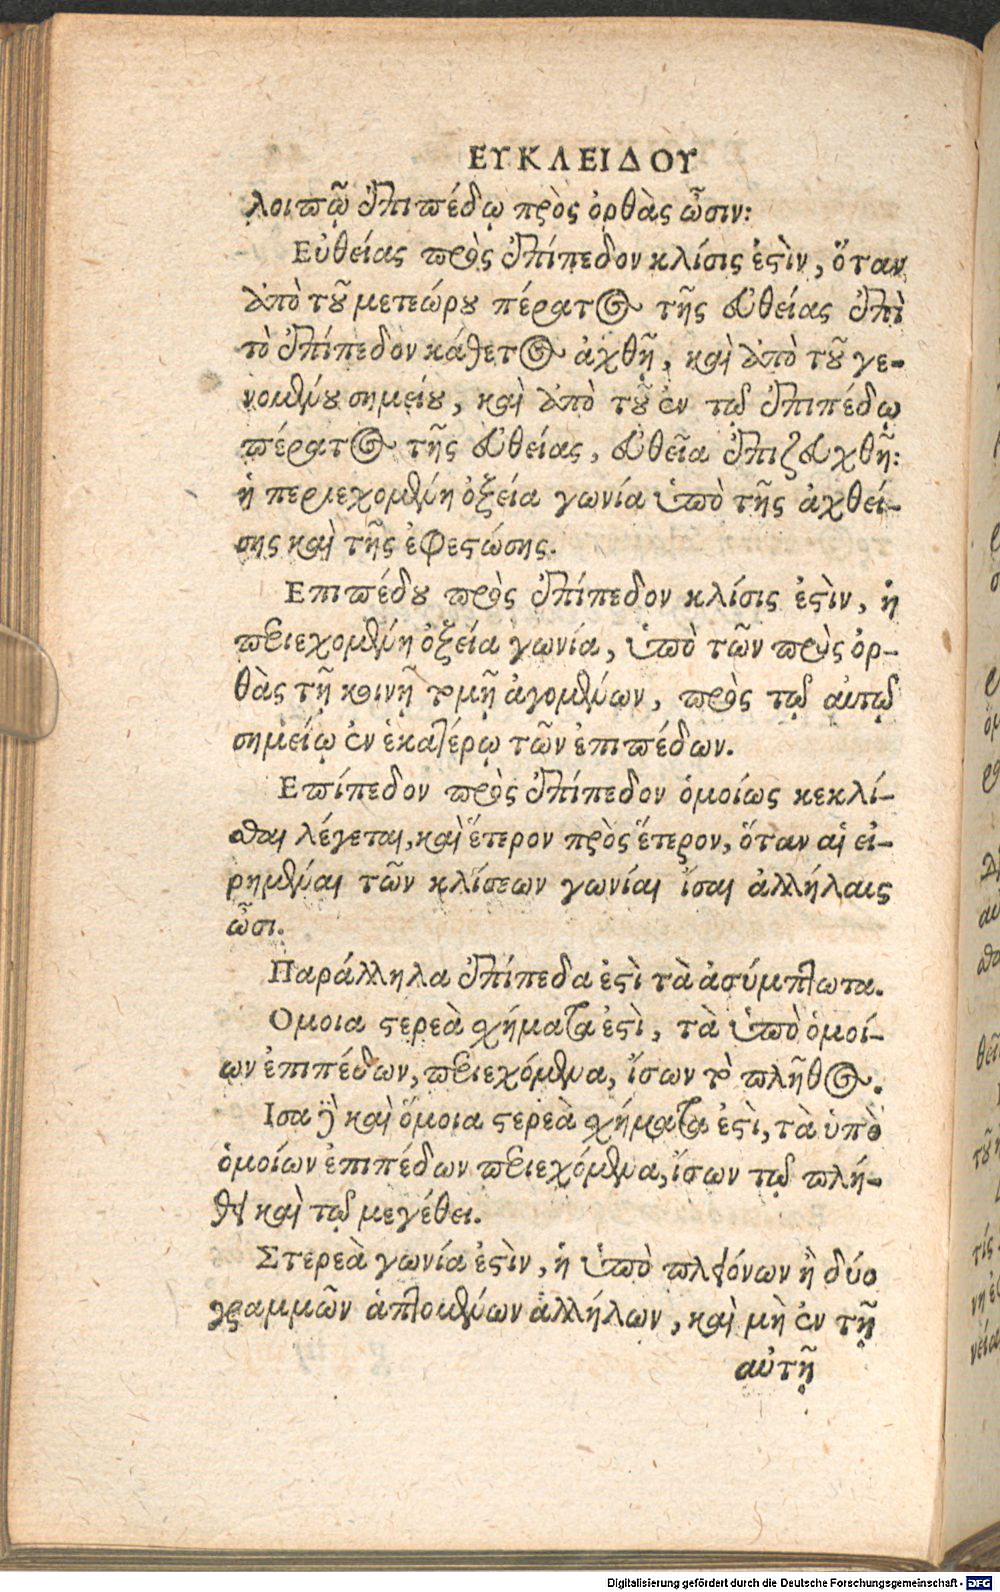 ΕΥΚΛΕΙΔΟΥ
λοιπῷ ἐπιπέδῳ πρὸς ὀρθὰς ὦσιν:
Εὐθείας πρὸς ἐπίπεδον κλίσις ἐςὶν, ὅταν
ἀπὸ τοῦ μετεώρου πέρατος τῆς εὐθείας ἐπὶ
τὸ ἐπίπεδον κάθετος ἀχθῇ, καὶ ἀπὸ τοῦ γε-
νομένου σημείου, καὶ ἀπὸ τοῦ ἐν τῷ ἐπιπέδῳ
πέρατος τῆς εὐθείας, εὐθεῖα ἐπιζευχθῇ:
ἡ περιεχομένη ὀξεία γωνία ὑπὸ τῆς ἀχθεί-
σης καὶ τῆς ἐφεςώσης.
Επιπέδου πρὸς ἐπίπεδον κλίσις ἐςὶν, ἡ
περιεχομένη ὀξεία γωνία, ὑπὸ τῶν πρὸς ὀρ-
θὰς τῇ κοινῇ τομῇ ἀγομένων, πρὸς τῷ αὐτῷ
σημείῳ ἐν ἑκατέρῳ τῶν ἐπιπέδων.
Επίπεδον πρὸς ἐπίπεδον ὁμοίως κεκλί-
σθαι λέγεται, καὶ ἕτερον πρὸς ἕτερον, ὅταν αἱ εἰ-
ρημέναι τῶν κλίσεων γωνίαι ἴσαι ἀλλήλαις
ὦσι.
Παράλληλα ἐπίπεδα ἐςὶ τὰ ἀσύμπτωτα.
Ομοια ςερεὰ σχήματα ἐςὶ, τὰ ὑπὸ ὁμοί-
ων ἐπιπέδων, περιεχόμενα, ἴσων τὸ πλῆθος.
Ισα δὲ καὶ ὅμοια ςερεὰ σχήματα ἐςὶ, τὰ ὑπὸ
ὁμοίων ἐπιπέδων περιεχόμενα, ἴσων τῷ πλή-
θει καὶ τῷ μεγέθει.
Στερεὰ γωνία ἐςὶν, ἡ ὑπὸ πλειόνων ἢ δύο
γραμμῶν ἁπτομένων ἀλλήλων, καὶ μὴ ἐν τῇ
αὐτῇ
Digitalisierung gefördert durch die Deutsche Forschungsgemeinschaft - DFG